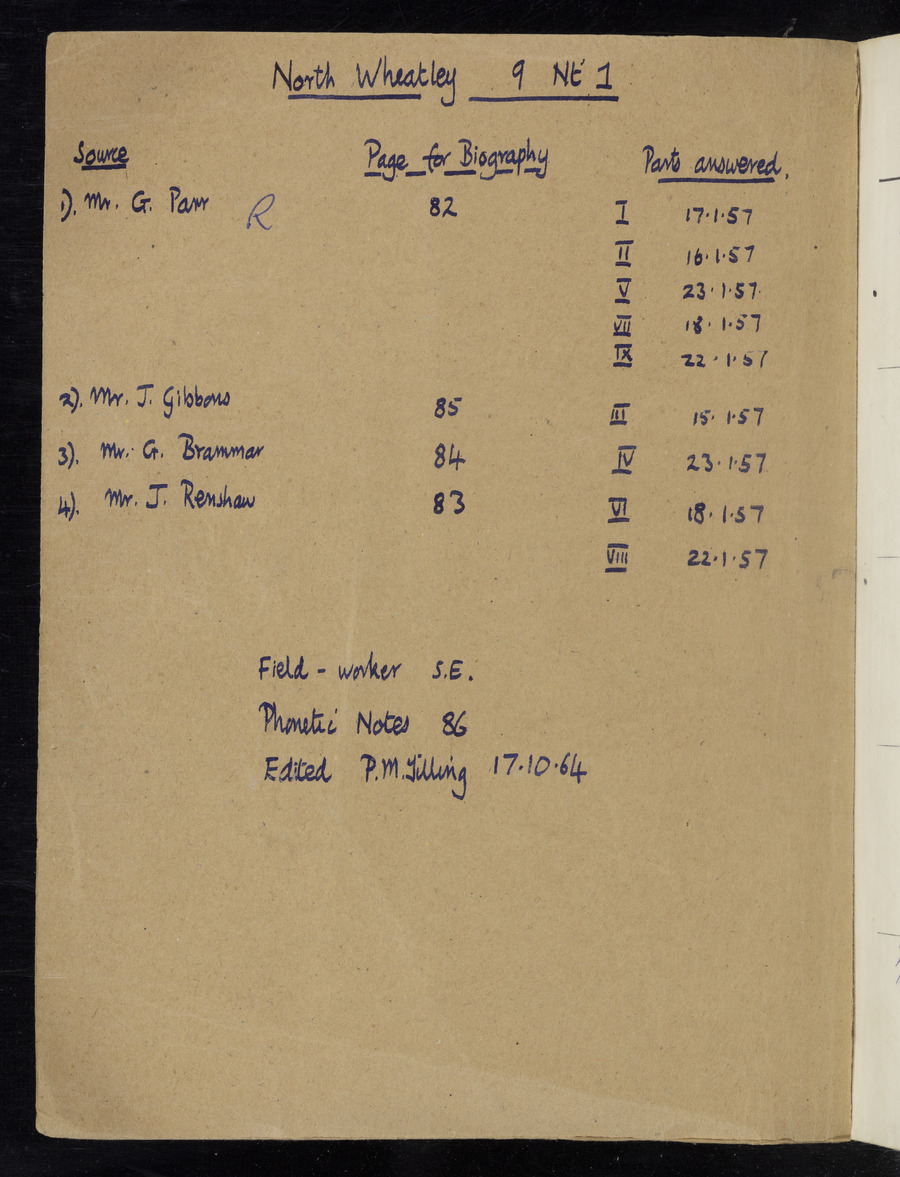 North Wheatley 9 Nt 1
Source Page for Biography Parts answered.
1). Mr. G. Parr R 82 I 17.1.57
II 16.1.57
V 23.1.57
VII 18.1.57
IX 22.1.57
2). Mr. J. Gibbons 85 III 15.1.57
3). Mr. G. Brammar 84 IV 23.1.57
4). Mr. J. Renshaw 83 VI 18.1.57
VIII 22.1.57
Field-worker S.E.
Phonetic Notes 86
Edited P.M. Tilling 17.10.64